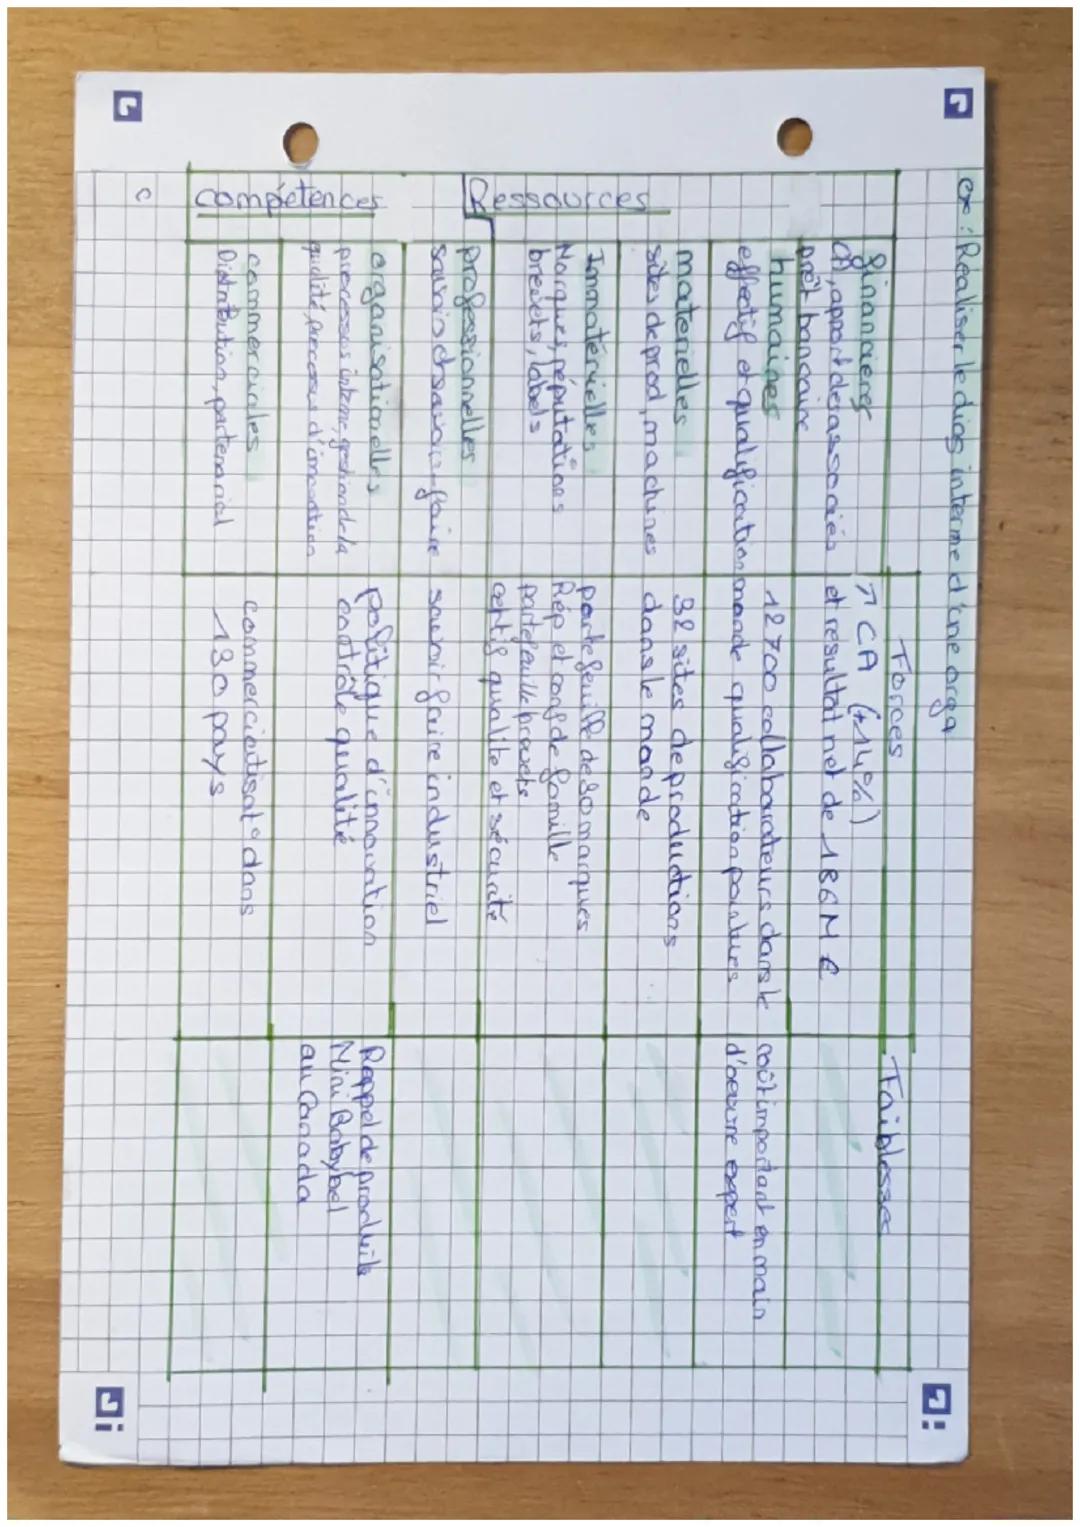 ex : Réaliser le diag interne d'une orga
Forces
Faiblesses
Ressources
financières
CA, apport des associés
prêt bancaire
↗ CA (+14%)
et résultat net de 186 M €
humaines
effectif et qualification
12700 collaborateurs dans le
monde qualification pointues
coût important en main
d'oeuvre expert
materielles
sites de prod, machines
32 sites de productions
dans le monde
Immatérielles
Marques, réputations
brevets, labels
portefeuille de 30 marques
Rép et conf de famille
portefeuille brevets
certif qualité et sécurité
compétences
professionnelles
savoirs et savoir-faire
savoir faire industriel
organisationelles
processus interne, gestion de la
qualité, processus d'innovation
politique d'innovation
contrôle qualité
Rappel de produits
Mini Babybel
au Canada
commerciales
Distribution, partenarial
commercialisat° dans
130 pays